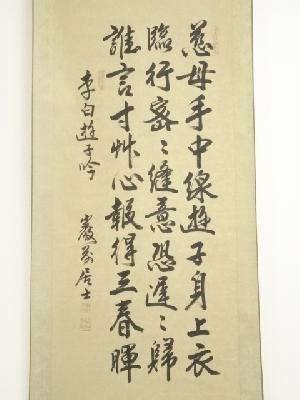 慈母手中線遊子身上衣
臨行密〻縫意恐遲〻歸
誰言寸艸心報得三春暉
李白遊子吟
居士